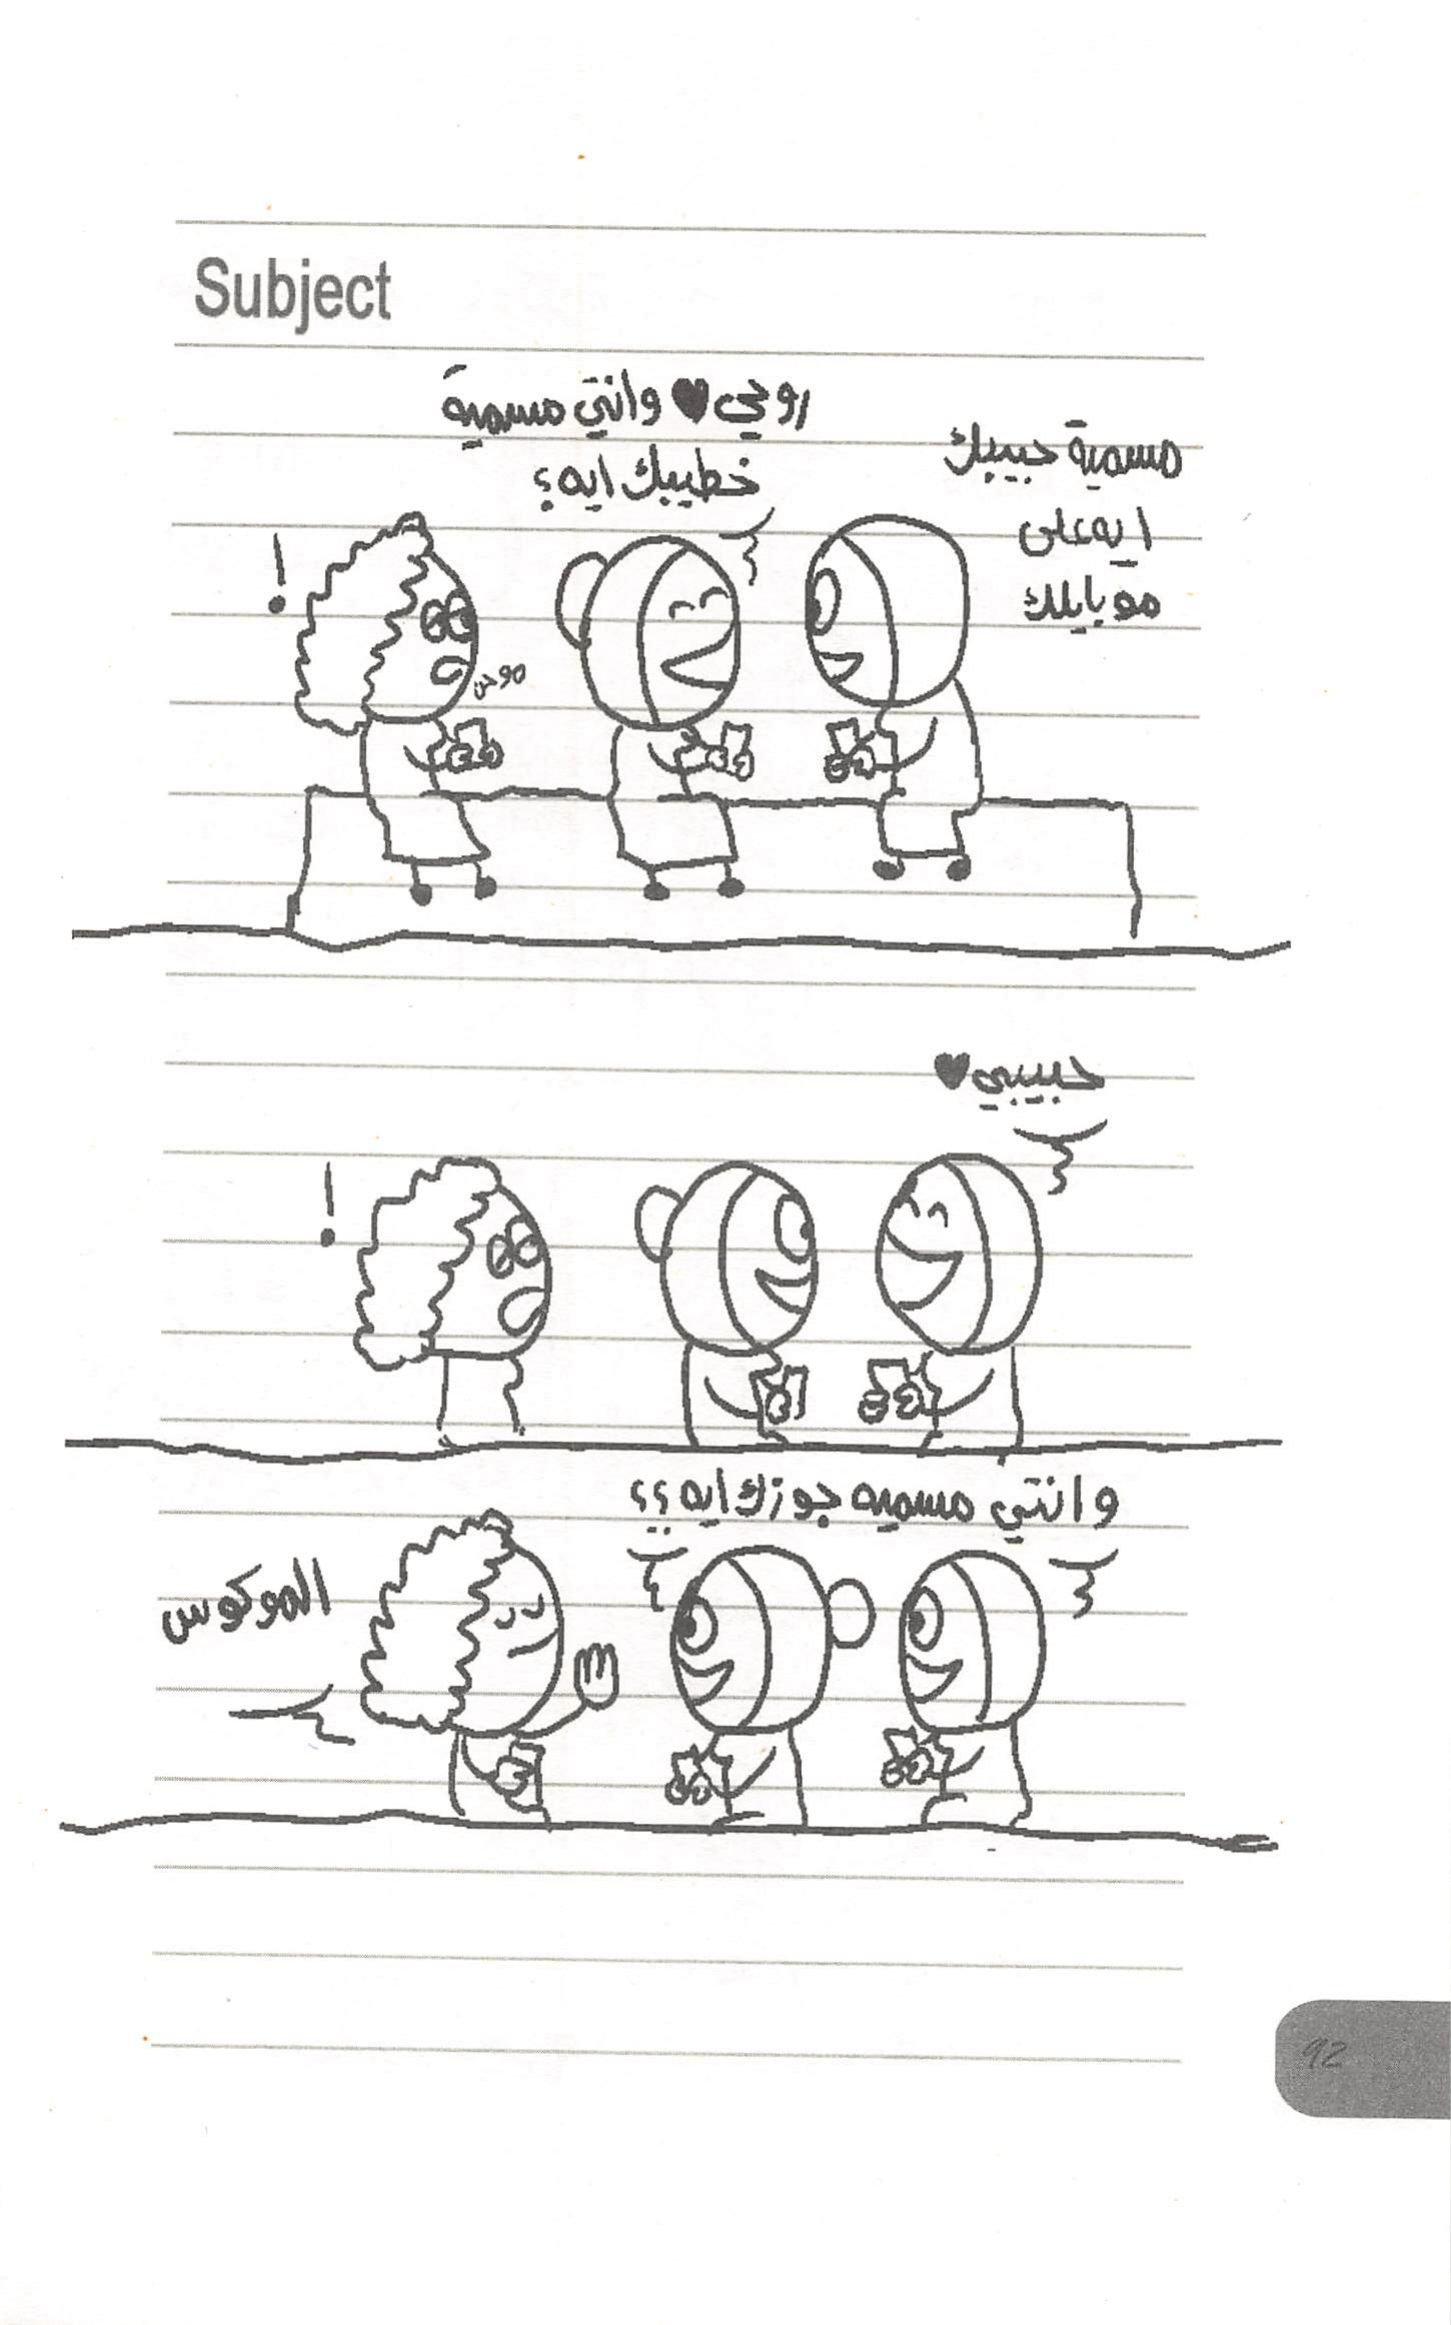 Subject
مسمية حبيبك
ايه على
موبايلك
روحي ♥ وانتي مسمية
خطيبك ايه؟
!
حبيبي ♥
!
وانتي مسميه جوزك ايه؟؟
الموكوس
92